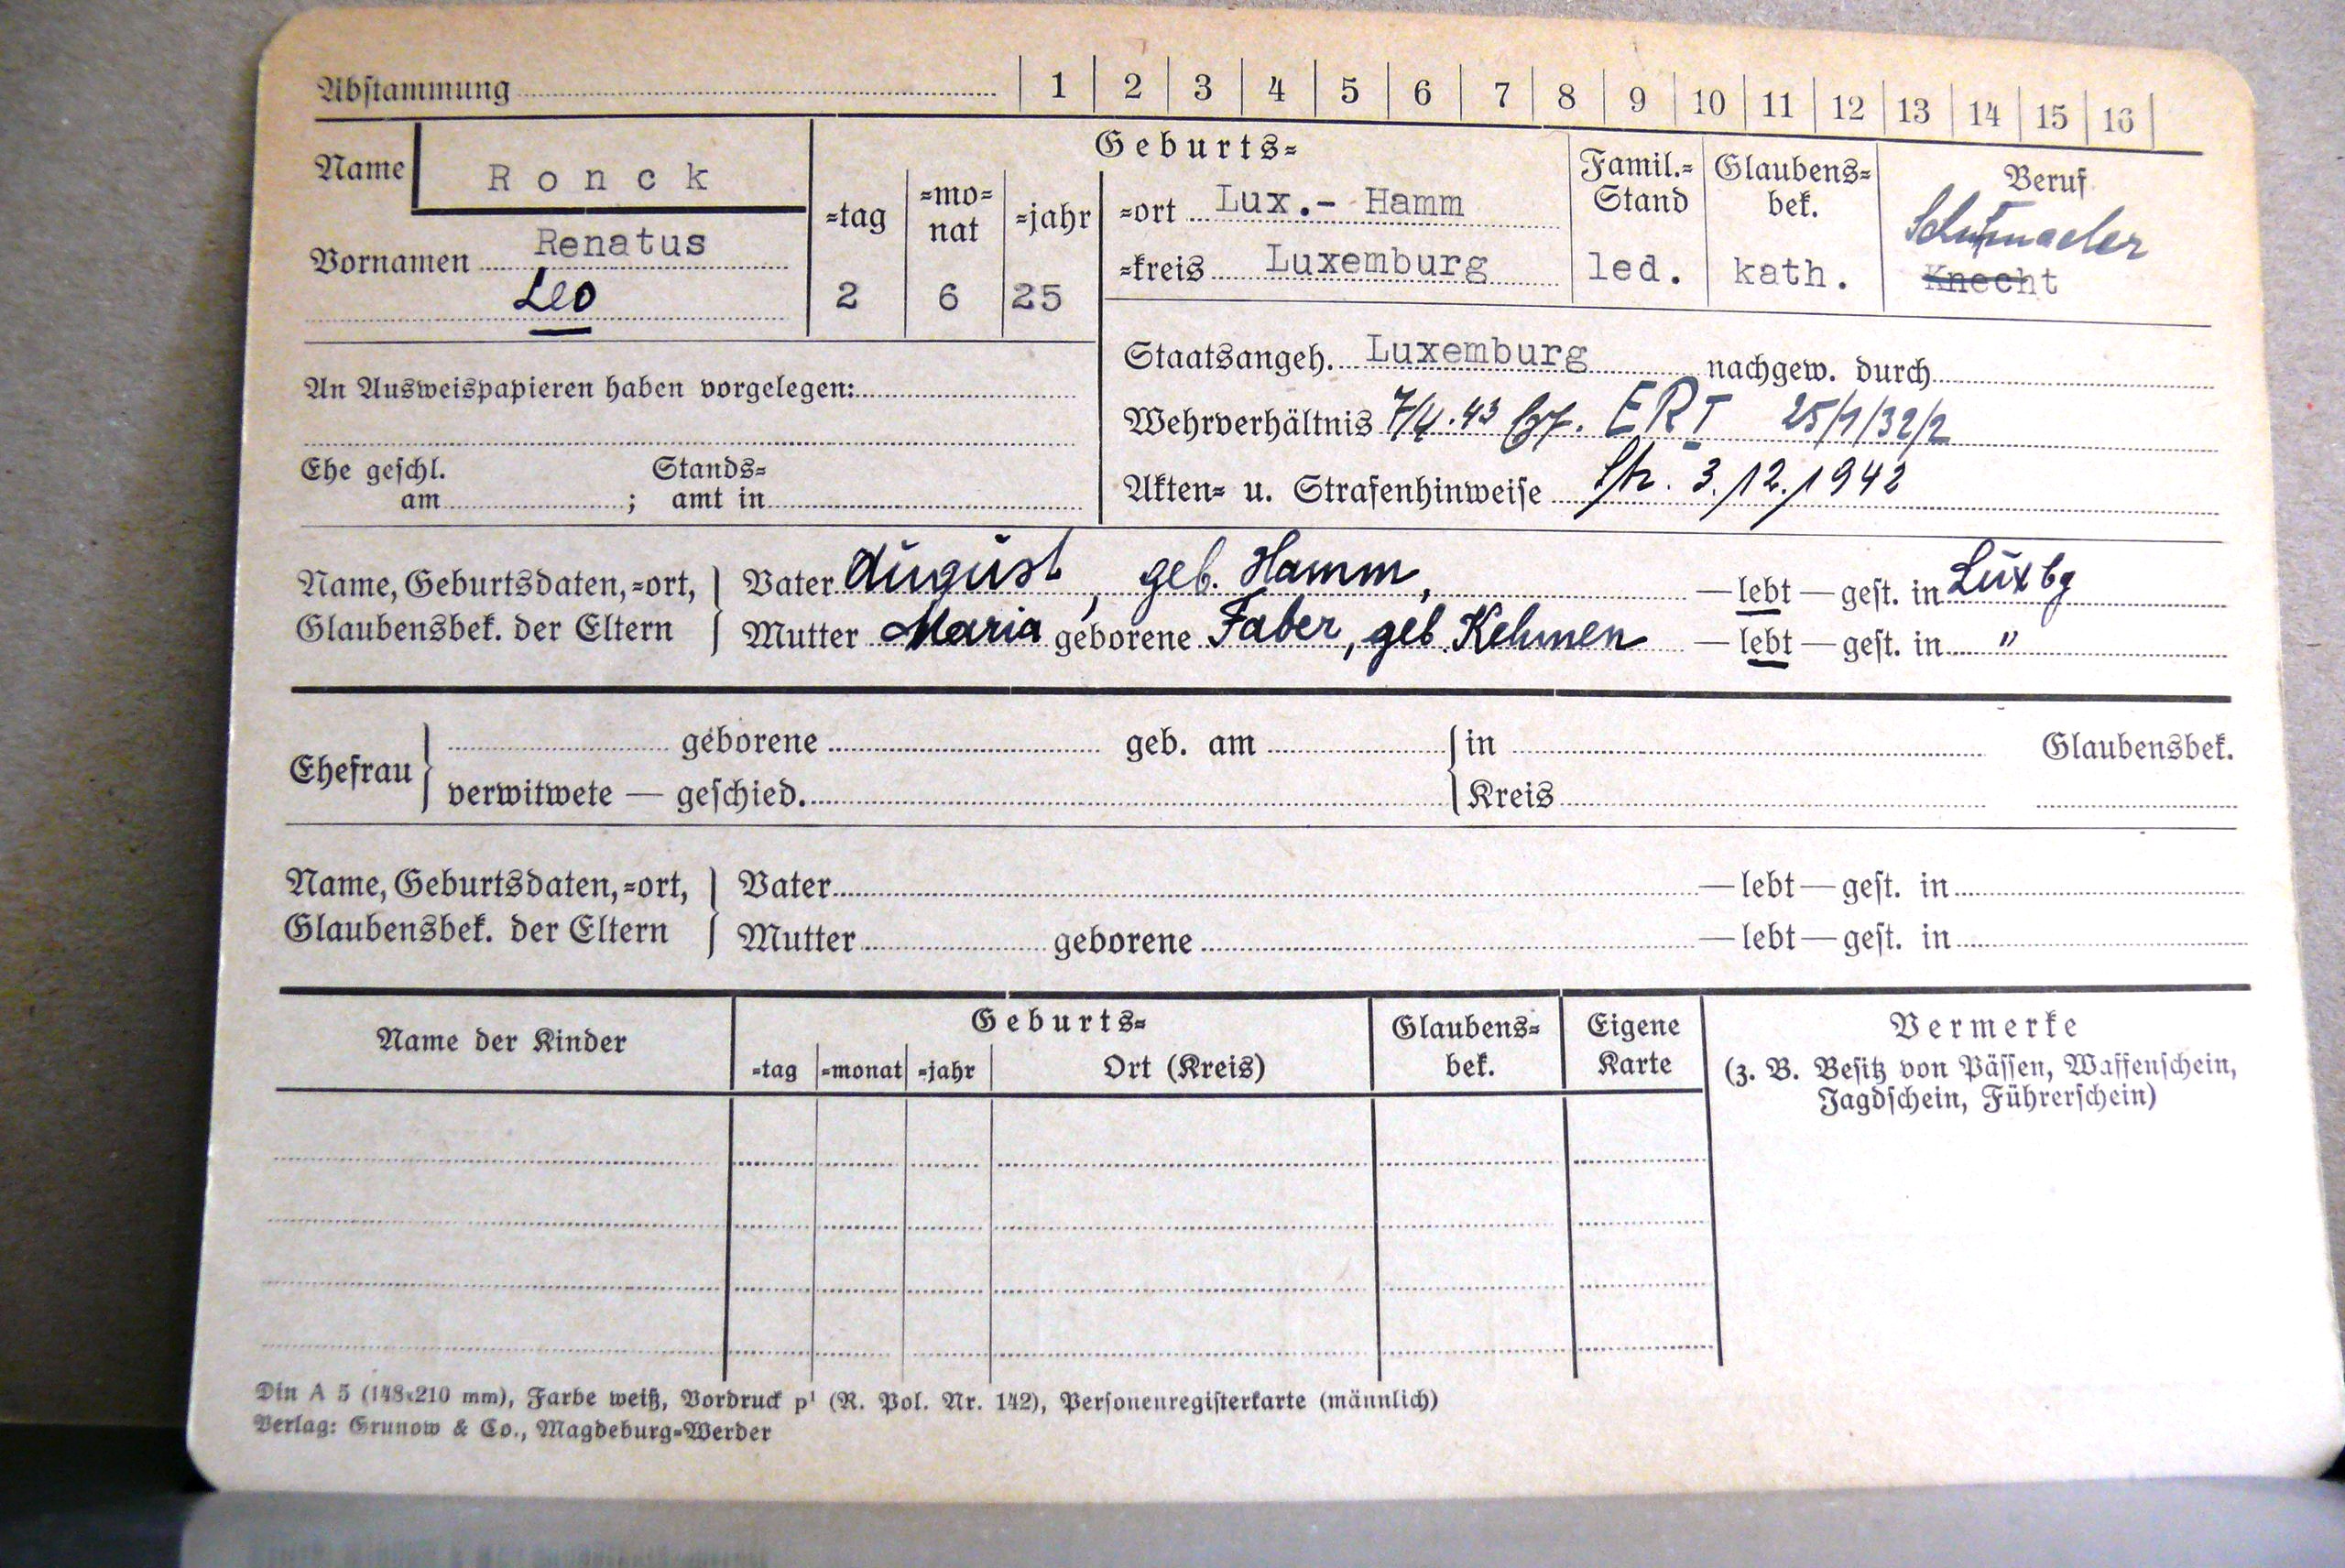 Abstammung 1 2 3 4 5 6 7 8 9 10 11 12 13 14 15 16
Name Ronck
Vornamen Renatus
Leo
Geburts=
=tag =mo=nat =jahr
2 6 25
=ort Lux.- Hamm
=kreis Luxemburg
Famil.=Stand
led.
Glaubens=bek.
kath.
Beruf
Knecht
An Ausweispapieren haben vorgelegen:
Ehe geschl. Stands=
am ; amt in
Staatsangeh. Luxemburg nachgew. durch
Wehrverhältnis ERT 25/1/32/2
Akten= u. Strafenhinweise 3./12./1942
Name, Geburtsdaten, =ort, Vater August, geb. Hamm, — lebt — gest. in Luxbg
Glaubensbek. der Eltern Mutter Maria geborene Faber, geb. Kehmen — lebt — gest. in "
Ehefrau geborene geb. am in Glaubensbek.
verwitwete — geschied. Kreis
Name, Geburtsdaten, =ort, Vater — lebt — gest. in
Glaubensbek. der Eltern Mutter geborene — lebt — gest. in
Name der Kinder
Geburts=
=tag =monat =jahr Ort (Kreis)
Glaubens=
bek.
Eigene
Karte
Vermerke
(z. B. Besitz von Pässen, Waffenschein,
Jagdschein, Führerschein)
Din A 5 (148x210 mm), Farbe weiß, Vordruck p¹ (R. Pol. Nr. 142), Personenregisterkarte (männlich)
Verlag: Grunow & Co., Magdeburg=Werder